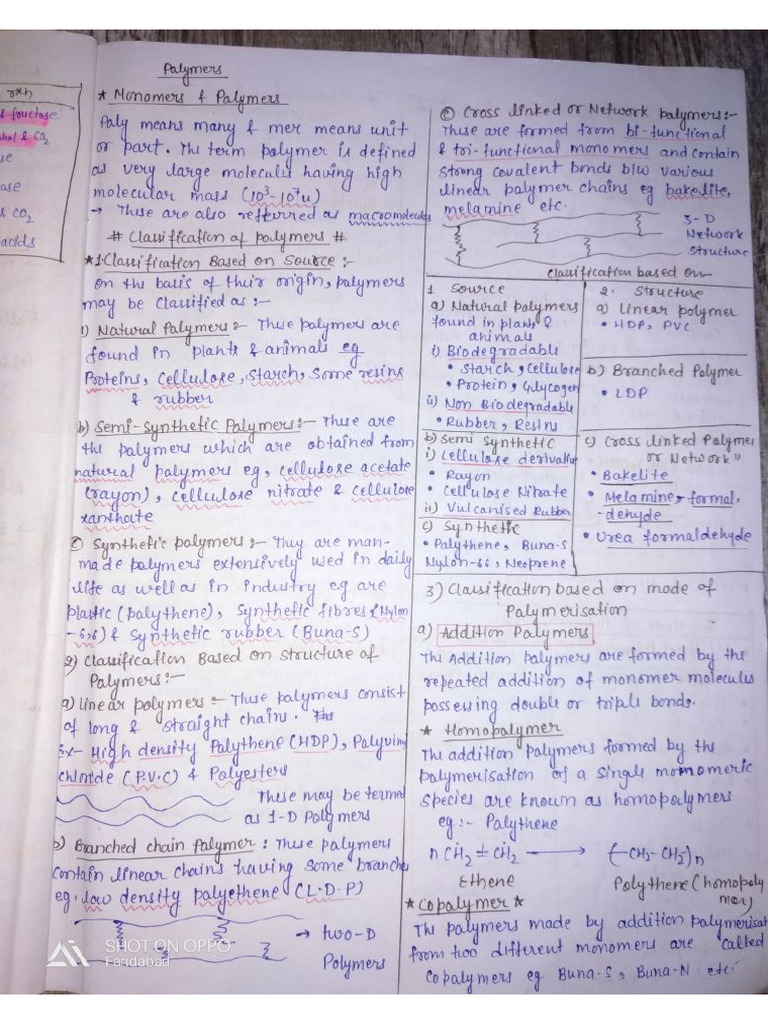 rxn
fructose
& CO2
ase
& CO2
acids
Polymers
* Monomers & Polymers
Poly means many & mer means unit
or part. The term polymer is defined
as very large molecules having high
molecular mass (10³-10⁷u)
→ These are also reffered as macromolecules
# Classification of polymers #
*1. Classification Based on Source :-
On the basis of their origin, polymers
may be Classified as :-
i) Natural Polymers :- These polymers are
found in plants & animals eg
Proteins, Cellulose, Starch, Some resins
& rubber
b) Semi-Synthetic Polymers :- These are
the polymers which are obtained from
natural polymers eg, cellulose acetate
(rayon), cellulose nitrate & cellulose
xanthate
c) Synthetic polymers :- They are man-
made polymers extensively used in daily
life as well as in industry e.g are
plastic (polythene), Synthetic fibres (Nylon
-6,6) & Synthetic rubber (Buna-S)
2) Classification Based on Structure of
Polymers :-
a) linear polymers :- These polymers consist
of long & straight chains. The
Ex- High density Polythene (HDP), Polyvinyl
chloride (P.V.C) & Polyesters
These may be termed
as 1-D Polymers
b) Branched chain Polymer : These polymers
contain linear chains having some branches
eg. low density polyethene (L.D.P)
→ two-D
Polymers
SHOT ON OPPO
Faridabad
c) Cross linked or Network polymers :-
These are formed from bi-functional
& tri-functional monomers and contain
strong covalent bonds b/w various
linear polymer chains eg bakelite,
melamine etc.
3-D
Network
Structure
Classification based on
1 Source
a) Natural polymers
found in plants &
animals
i) Biodegradable
• Starch, Cellulose
• Protein, Glycogen
ii) Non Biodegradable
• Rubber, Resins
b) Semi Synthetic
i) Cellulose derivative
• Rayon
• Cellulose Nitrate
ii) Vulcanised Rubber
c) Synthetic
• Polythene, Buna-S
Nylon-66, Neoprene
2. Structure
a) Linear polymer
• HDP, PVC
b) Branched Polymer
• LDP
c) Cross linked Polymer
or Network"
• Bakelite
• Melamine-formal-
dehyde
• Urea formaldehyde
3) Classification based on mode of
Polymerisation
a) Addition Polymers
The Addition polymers are formed by the
repeated addition of monomer molecules
possessing double or triple bonds.
* Homopolymer
The addition polymers formed by the
polymerisation of a single monomeric
species are known as homopolymers
eg :- Polythene
n CH2 = CH2 → (-CH2-CH2)n
Ethene Polythene (homopoly
mer)
* Copolymer *
The polymers made by addition polymerisat
from two different monomers are called
Copolymers eg Buna-S, Buna-N etc.